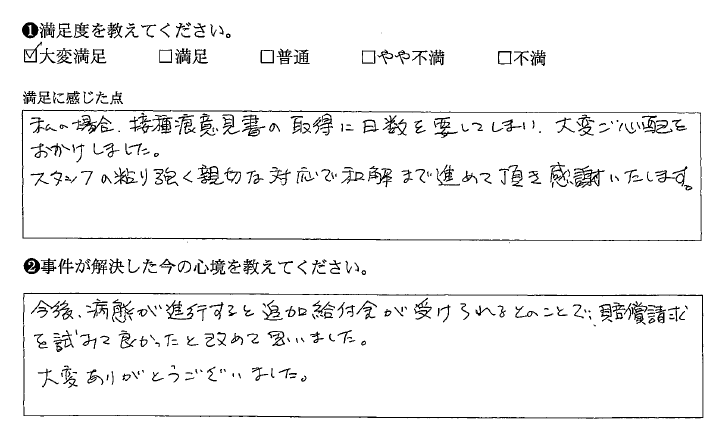 ❶満足度を教えてください。
☑大変満足 □満足 □普通 □やや不満 □不満
満足に感じた点
私の場合、接種痕意見書の取得に日数を要してしまい、大変ご心配を
おかけしました。
スタッフの粘り強く親切な対応で和解まで進めて頂き感謝いたします。
❷事件が解決した今の心境を教えてください。
今後、病態が進行すると追加給付金が受けられるとのことで、賠償請求
を試みて良かったと改めて思いました。
大変ありがとうございました。